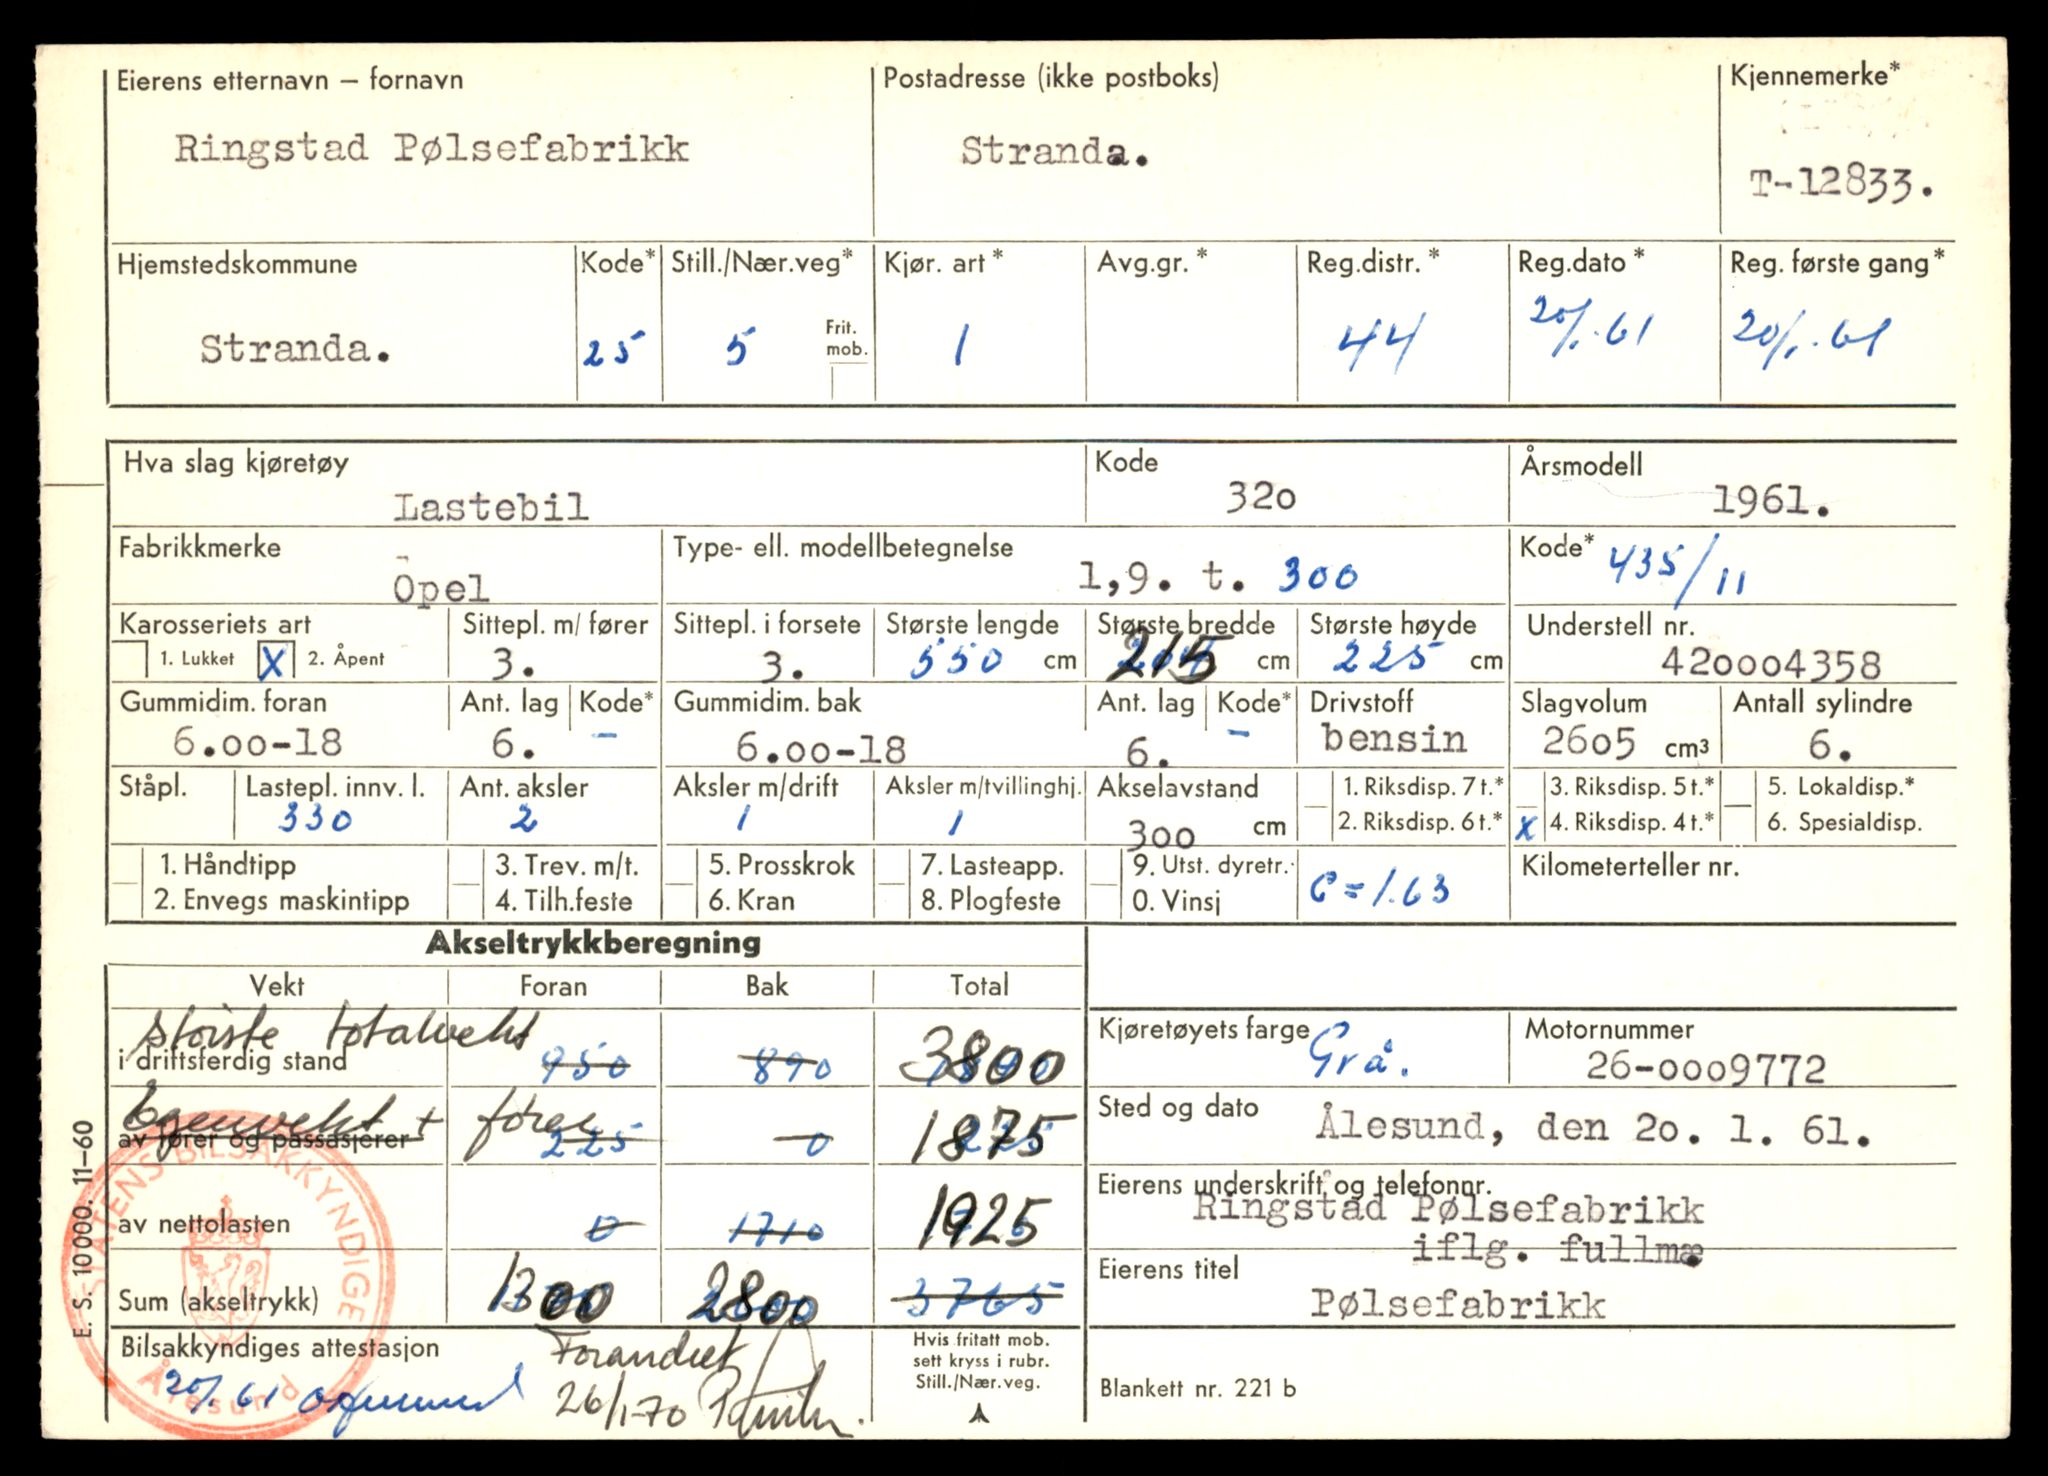 Eierens etternavn – fornavn Postadresse (ikke postboks) Kjennemerke*
Ringstad Pølsefabrikk Stranda. T-12833.
Hjemstedskommune Kode* Still./Nær.veg* Kjør. art* Avg.gr.* Reg.distr.* Reg.dato* Reg. første gang*
Stranda. 25 5 Frit. mob. 1 44 20/1.61 20/1.61
Hva slag kjøretøy Kode Årsmodell
Lastebil 320 1961.
Fabrikkmerke Type- ell. modellbetegnelse Kode*
Opel 1,9. t. 300 435/11
Karosseriets art Sittepl. m/ fører Sittepl. i forsete Største lengde Største bredde Største høyde Understell nr.
1. Lukket X 2. Åpent 3. 3. 550 cm 215 cm 225 cm 420004358
Gummidim. foran Ant. lag Kode* Gummidim. bak Ant. lag Kode* Drivstoff Slagvolum Antall sylindre
6.00-18 6. – 6.00-18 6. – bensin 2605 cm³ 6.
Ståpl. Lastepl. innv. l. Ant. aksler Aksler m/drift Aksler m/tvillinghj. Akselavstand 1. Riksdisp. 7 t.* 3. Riksdisp. 5 t.* 5. Lokaldisp.*
330 2 1 1 300 cm 2. Riksdisp. 6 t.* X 4. Riksdisp. 4 t.* 6. Spesialdisp.
1. Håndtipp 3. Trev. m/t. 5. Prosskrok 7. Lasteapp. 9. Utst. dyretr. C = 1.63 Kilometerteller nr.
2. Envegs maskintipp 4. Tilh.feste 6. Kran 8. Plogfeste 0. Vinsj
Akseltrykkberegning
Vekt Foran Bak Total
største totalvekt
i driftsferdig stand 950 890 3800
Kjøretøyets farge Grå. Motornummer 26-0009772
Egenvekt + fører
av fører og passasjerer 225 0 1875
Sted og dato Ålesund, den 20. 1. 61.
av nettolasten 0 1710 1925
Eierens underskrift og telefonnr.
Ringstad Pølsefabrikk
iflg. fullm.
Sum (akseltrykk) 1300 2800 3765
Eierens titel
Pølsefabrikk
Bilsakkyndiges attestasjon Forandret
20/1.61 26/1-70
Hvis fritatt mob.
sett kryss i rubr.
Still./Nær.veg.
Blankett nr. 221 b
E. S. 10000. 11–60
STATENS BILSAKKYNDIGE
Ålesund